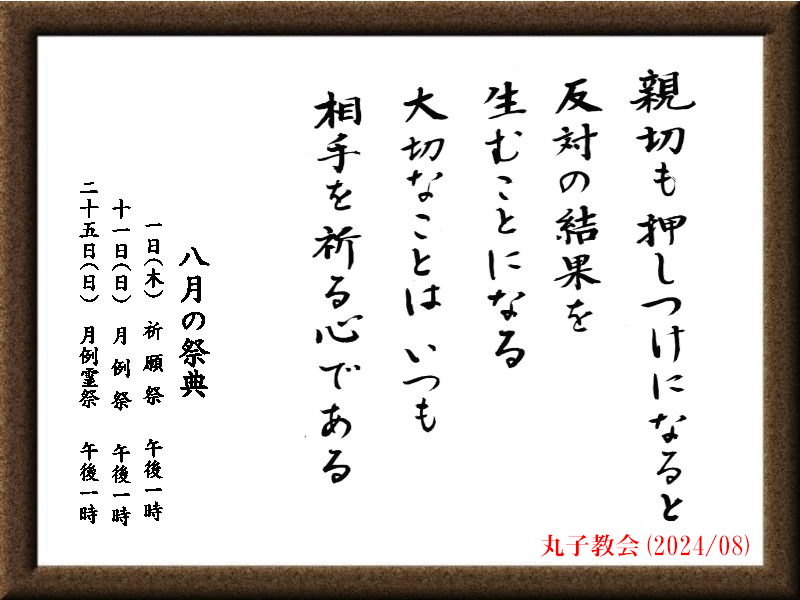 親切も押しつけになると
反対の結果を
生むことになる
大切なことは いつも
相手を祈る心である
八月の祭典
一日(木) 祈願祭 午後一時
十一日(日) 月例祭 午後一時
二十五日(日) 月例霊祭 午後一時
丸子教会(2024/08)